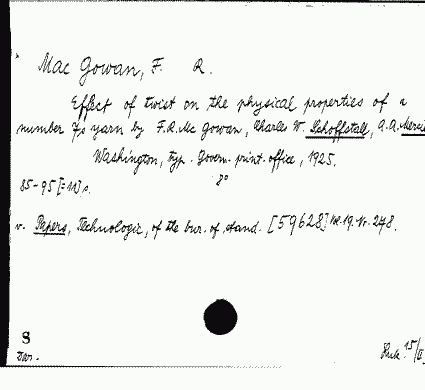 Mac Gowan, F. R.
Effect of twist on the physical properties of a
number 7/s yarn by F.R. Mc Gowan, Charles W. Schoffstall, A.A. Mercie
Washington, typ. Govern. print. office, 1925.
8°
85-95 [=11] s.
v. Papers, Technologic, of the bur. of stand. [59628] Vol. 19. Nr. 278.
S
15/II